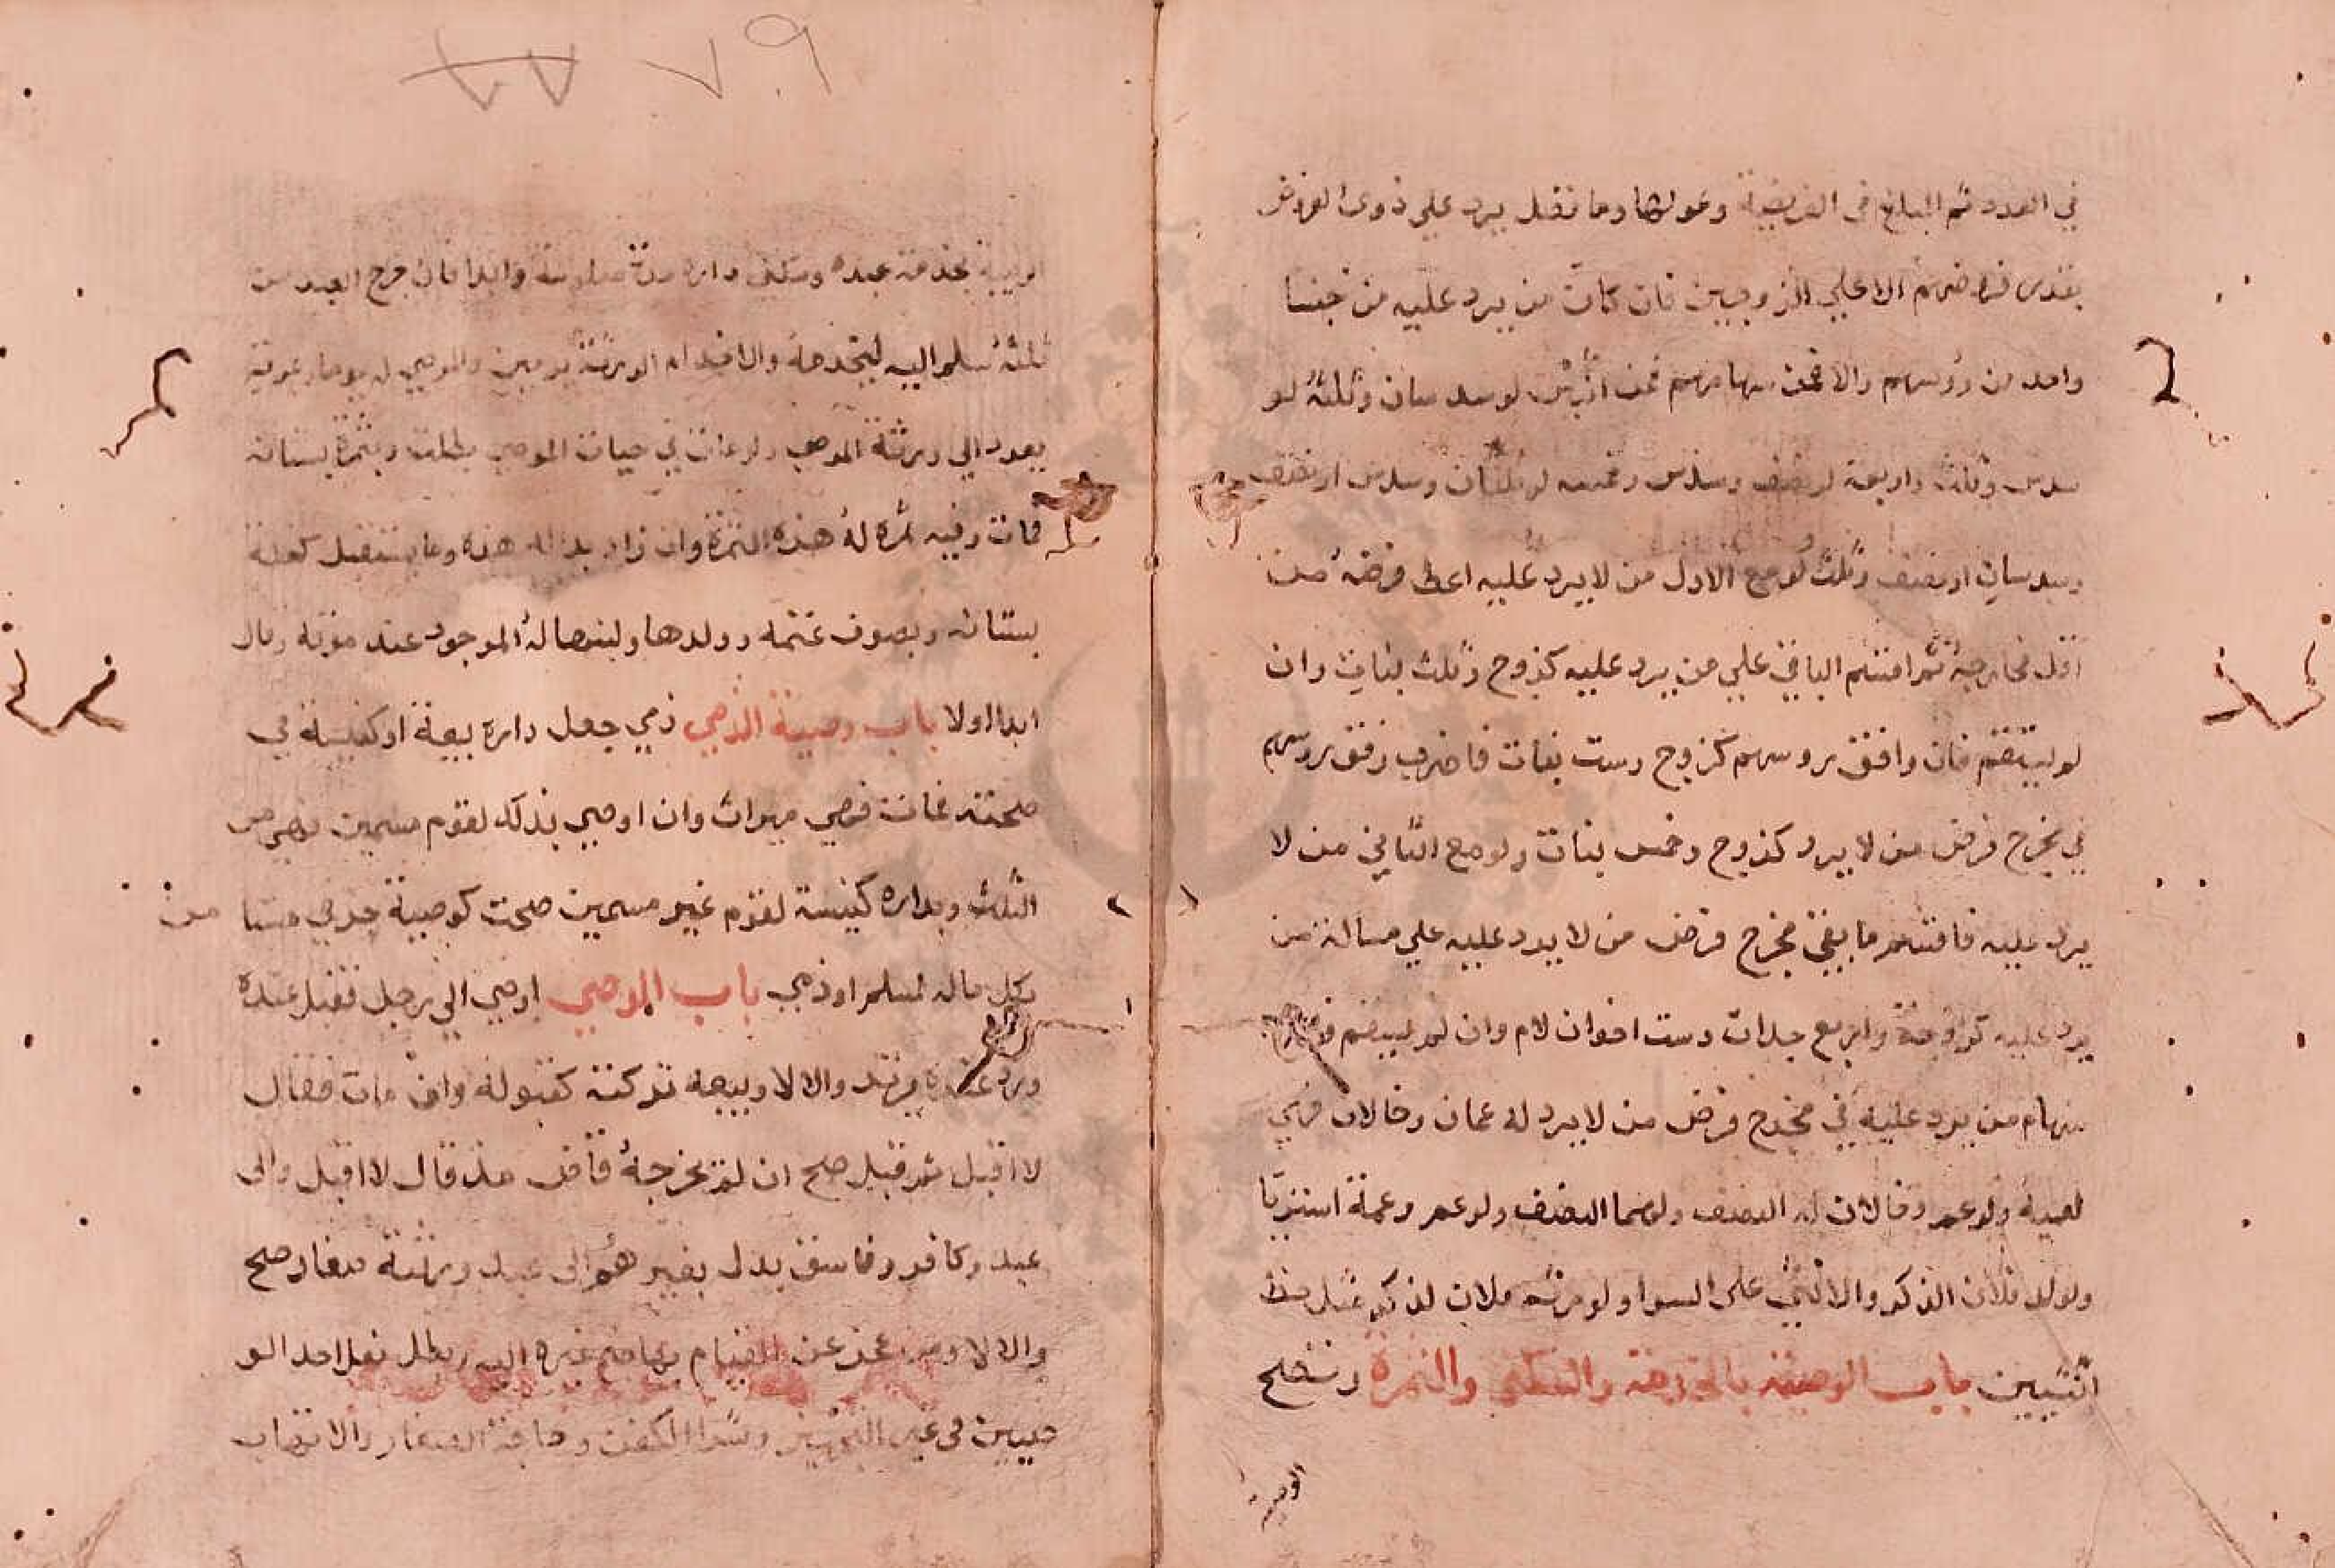 في العدد ثم المبلغ في الفريضة وعولها وما فضل يرد علي ذوي الفروض
بقدر فروضهم الا علي الزوجين فان كان من يرد عليه من جنسا
واحد من رؤسهم والا فمن سهامهم فمن اثنين لو سدسان وثلثة لو
سدس وثلث واربعة لو نصف وسدس وخمسة لو ثلثان وسدس او نصف
وسدسان او نصف وثلث لو مع الاول من لا يرد عليه اعط فرضه من
اقل مخارجه ثم اقسم الباقي علي من يرد عليه كزوج وثلث بنات وان
لو يستقم فان وافق روسهم كزوج وست بنات فاضرب وفق روسهم
في مخرج فرض من لا يرد كزوج وخمس بنات ولو مع الثاني من لا
يرد عليه فاقسم ما بقي مخرج فرض من لا يرد عليه علي مسالة من
يرد عليه كزوجة واربع جدات وست اخوات لام وان لم يستقم
سهام من يرد عليه في مخرج فرض من لا يرد له عمان وخالان فهي
لعميه ولو عم وخالان له النصف ولهما النصف ولو عم وعمة استويا
ولولد فلان الذكر والانثي علي السوا ولورثة فلان لذكر مثل حظ
انثيين باب الوصية بالخدمة والسكني والثمرة وتصح
الوصية
الوصية بخدمة عبده وسكني داره مدة معلومة وابدا فان خرج العبد من
ثلثه سلم اليه ليخدمه والا خدم الورثة يومين والموصي له يوما وبموته
يعود الي ورثة الموصي ولو مات في حيات الموصي بطلت وبثمرة بستانه
فمات وفيه ثمرة له هذه الثمرة وان زاد ابدا له هذه وما يستقبل كغلة
بستانه وبصوف غنمه وولدها ولبنها له الموجود عند موته قال
ابدا اولا باب وصية الذمي ذمي جعل داره بيعة او كنيسة في
صحته فمات فهي ميراث وان اوصي بذلك لقوم مسمين فهي من
الثلث وبداره كنيسة لقوم غير مسمين صحت كوصية حربي مستا من
بكل ماله لمسلم او ذمي باب الموصي اوصي الي رجل فقبل عنده
ورد عنده يرتد والا لا وبيعه تركته كقبوله وان مات فقال
لا اقبل ثم قبل صح ان لم يخرجه قاض مذ قال لا اقبل والي
عبد وكافر وفاسق بدل بغيرهم والي عبده وورثته صغار صح
والا لا ومن عجز عن القيام بها ضم غيره اليه وبطل فعل احد الو
صيين في غير التجهيز وشرا الكفن وحاجة الصغار والاتهاب